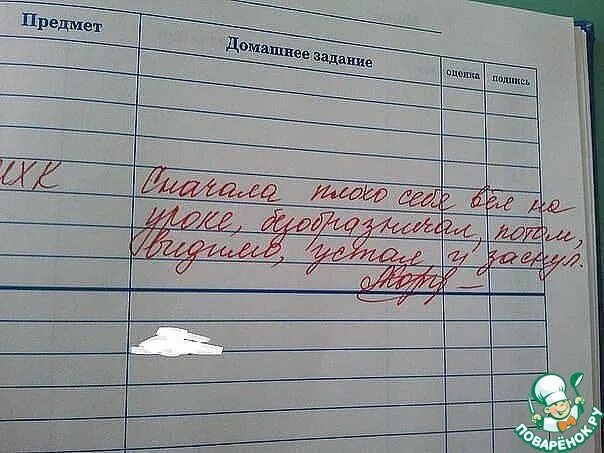 Предмет
Домашнее задание
оценка
подпись
МХК
Сначала плохо себя вёл на
уроке, безобразничал, потом,
видимо, устал и заснул.
ПОВАРЁНОК.РУ